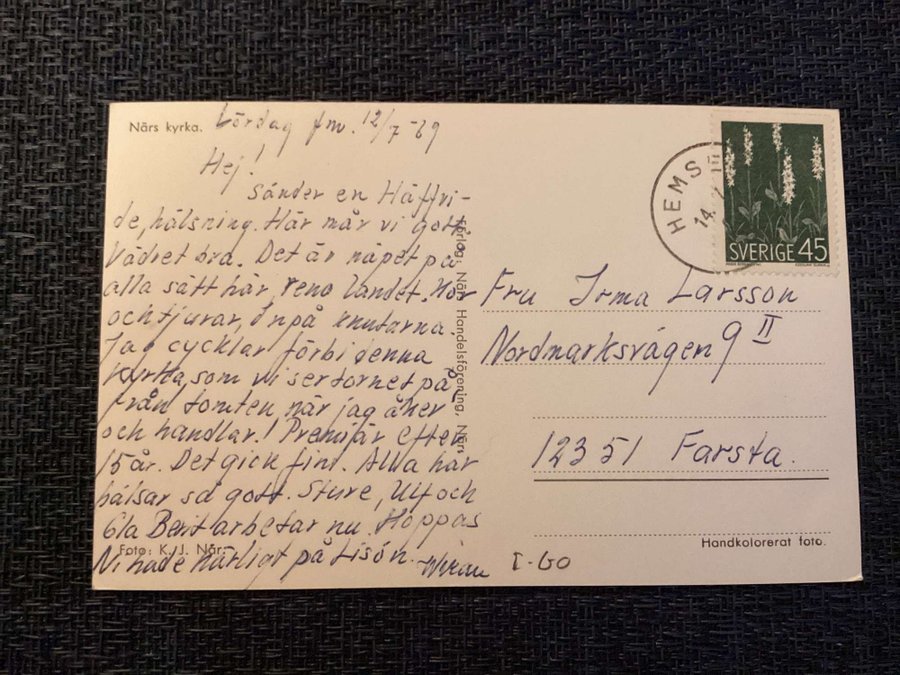 Närs kyrka.
Lördag fm. 12/7-69
Hej!
Sänder en Häffri-
de, hälsning. Här mår vi gott
Vädret bra. Det är näpet på
alla sätt här, reno landet. Kor
och tjurar, inpå knutarna.
Jag cycklar förbi denna
kyrka, som vi ser tornet på
från tomten, när jag åker
och handlar! Premiär efter
15 år. Det gick fint. Alla här
hälsar så gott. Sture, Ulf och
Berit arbetar nu. Hoppas
Ni hade härligt på
Foto: K. J. När.
Förlag: När Handelsförening, När
HEMS
14. 7
SVERIGE 45
Fru Irma Larsson
Nordmarksvägen 9 II
123 51 Farsta.
Handkolorerat foto.